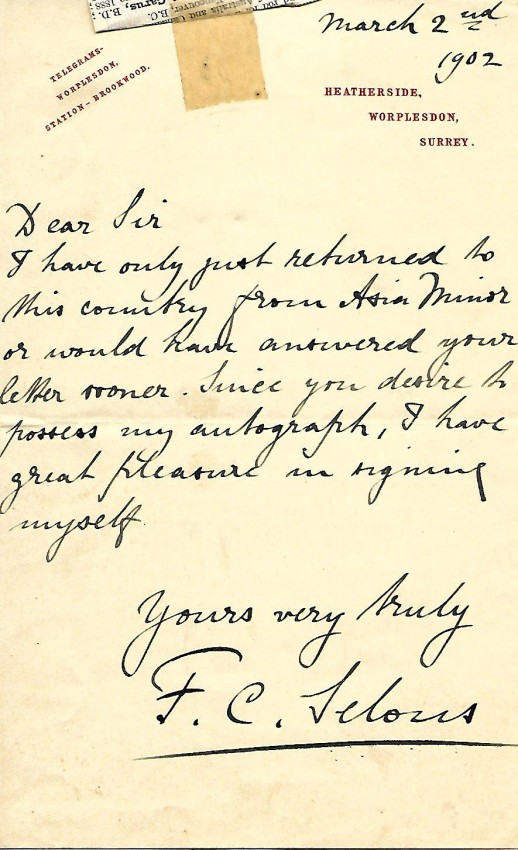 March 2nd
1902
TELEGRAMS-
WORPLESDON,
STATION - BROOKWOOD.
HEATHERSIDE,
WORPLESDON,
SURREY.
Dear Sir
I have only just returned to
this country from Asia Minor
or would have answered your
letter sooner. Since you desire to
possess my autograph, I have
great pleasure in signing
myself
Yours very truly
F. C. Selous